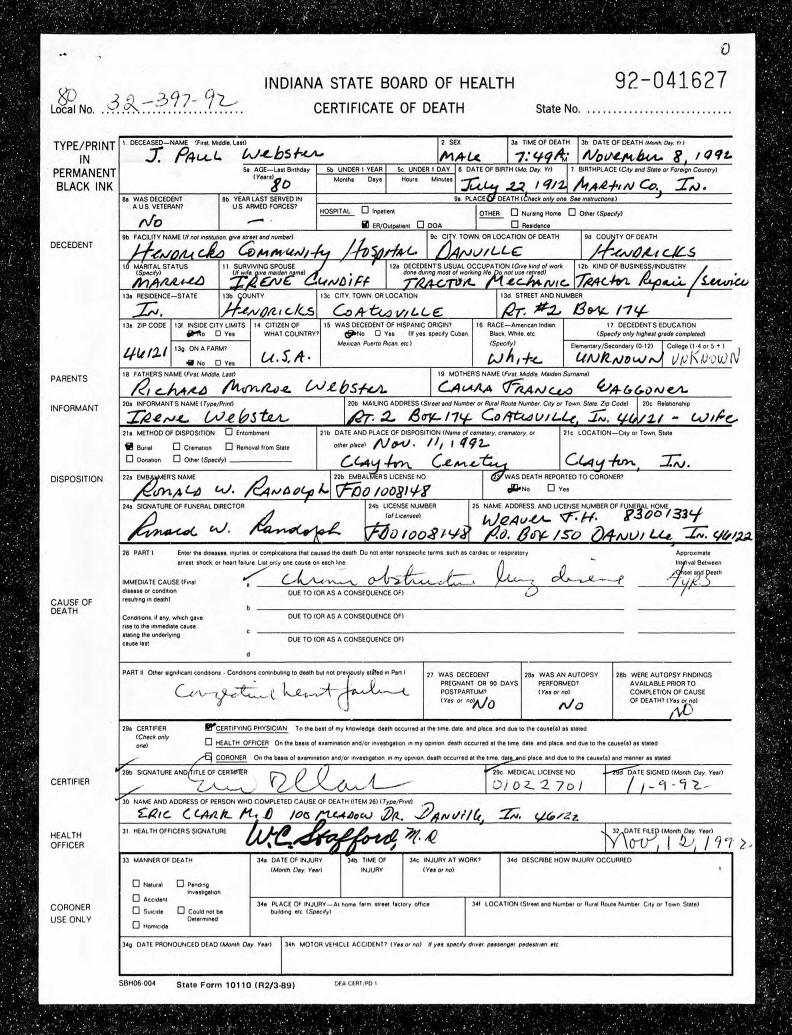 0
INDIANA STATE BOARD OF HEALTH 92-041627
80
Local No. 32-397-92 CERTIFICATE OF DEATH State No.
TYPE/PRINT IN PERMANENT BLACK INK
1. DECEASED—NAME (First, Middle, Last) 2 SEX 3a TIME OF DEATH 3b. DATE OF DEATH (Month, Day, Yr.)
J. PAUL Webster MALE 7:49A. November 8, 1992
5a AGE—Last Birthday (Years) 5b UNDER 1 YEAR 5c UNDER 1 DAY 6 DATE OF BIRTH (Mo. Day. Yr) 7. BIRTHPLACE (City and State or Foreign Country)
80 Months Days Hours Minutes July 22, 1912 MARTIN Co, IN.
8a WAS DECEDENT A U.S. VETERAN? 8b YEAR LAST SERVED IN U.S. ARMED FORCES? 9a. PLACE OF DEATH (Check only one. See instructions)
No — HOSPITAL ☐ Inpatient ☒ ER/Outpatient ☐ DOA OTHER ☐ Nursing Home ☐ Other (Specify) ☐ Residence
DECEDENT
9b FACILITY NAME (If not institution, give street and number) 9c CITY, TOWN, OR LOCATION OF DEATH 9d COUNTY OF DEATH
Hendricks Community Hospital DANVILLE Hendricks
10 MARITAL STATUS (Specify) 11 SURVIVING SPOUSE (If wife, give maiden name) 12a DECEDENT'S USUAL OCCUPATION (Give kind of work done during most of working life. Do not use retired) 12b KIND OF BUSINESS/INDUSTRY
MARRIED IRENE CUNDIFF TRACTOR Mechanic Tractor Repair / Service
13a RESIDENCE—STATE 13b COUNTY 13c CITY, TOWN OR LOCATION 13d STREET AND NUMBER
IN. Hendricks COATSVILLE Rt. #2 Box 174
13e ZIP CODE 13f INSIDE CITY LIMITS ☒ No ☐ Yes 14 CITIZEN OF WHAT COUNTRY? 15 WAS DECEDENT OF HISPANIC ORIGIN? ☒ No ☐ Yes (If yes, specify Cuban, Mexican, Puerto Rican, etc.) 16 RACE—American Indian, Black, White, etc (Specify) 17 DECEDENT'S EDUCATION (Specify only highest grade completed)
46121 13g ON A FARM? ☒ No ☐ Yes U.S.A. White Elementary/Secondary (0-12) UNKNOWN College (1-4 or 5+) UNKNOWN
PARENTS
18 FATHER'S NAME (First, Middle, Last) 19 MOTHER'S NAME (First, Middle, Maiden Surname)
Richard Monroe Webster LAURA FRANCES WAGGONER
INFORMANT
20a INFORMANT'S NAME (Type/Print) 20b MAILING ADDRESS (Street and Number or Rural Route Number, City or Town, State, Zip Code) 20c Relationship
IRENE Webster RT. 2 Box 174 COATSVILLE, IN. 46121 - Wife
21a METHOD OF DISPOSITION ☐ Entombment 21b DATE AND PLACE OF DISPOSITION (Name of cemetery, crematory, or other place) 21c LOCATION—City or Town, State
☒ Burial ☐ Cremation ☐ Removal from State NOV. 11, 1992
☐ Donation ☐ Other (Specify) CLAYton Cemetery CLAYton, IN.
DISPOSITION
22a EMBALMER'S NAME 22b EMBALMER'S LICENSE NO 23 WAS DEATH REPORTED TO CORONER?
RONALD W. RANDOLPH FDO1008148 ☒ No ☐ Yes
24a SIGNATURE OF FUNERAL DIRECTOR 24b LICENSE NUMBER (of Licensee) 25 NAME, ADDRESS, AND LICENSE NUMBER OF FUNERAL HOME
Ronald W. Randolph FDO1008148 WEAVER F.H. 83001334
P.O. Box 150 DANVILLE, IN. 46122
CAUSE OF DEATH
26 PART I Enter the diseases, injuries, or complications that caused the death. Do not enter nonspecific terms, such as cardiac or respiratory arrest, shock, or heart failure. List only one cause on each line Approximate Interval Between Onset and Death
IMMEDIATE CAUSE (Final disease or condition resulting in death) a Chronic obstructive lung disease 4 yrs
DUE TO (OR AS A CONSEQUENCE OF)
b
Conditions, if any, which gave rise to the immediate cause stating the underlying cause last
DUE TO (OR AS A CONSEQUENCE OF)
c
DUE TO (OR AS A CONSEQUENCE OF)
d
PART II Other significant conditions - Conditions contributing to death but not previously stated in Part I 27 WAS DECEDENT PREGNANT OR 90 DAYS POSTPARTUM? (Yes or no) 28a WAS AN AUTOPSY PERFORMED? (Yes or no) 28b WERE AUTOPSY FINDINGS AVAILABLE PRIOR TO COMPLETION OF CAUSE OF DEATH? (Yes or no)
Congestive heart failure No No NO
CERTIFIER
29a CERTIFIER (Check only one) ☒ CERTIFYING PHYSICIAN To the best of my knowledge, death occurred at the time, date, and place, and due to the cause(s) as stated
☐ HEALTH OFFICER On the basis of examination and/or investigation, in my opinion, death occurred at the time, date, and place, and due to the cause(s) as stated
☐ CORONER On the basis of examination and/or investigation, in my opinion, death occurred at the time, date, and place, and due to the cause(s) and manner as stated
29b SIGNATURE AND TITLE OF CERTIFIER 29c MEDICAL LICENSE NO 29d DATE SIGNED (Month, Day, Year)
01022701 11-9-92
30 NAME AND ADDRESS OF PERSON WHO COMPLETED CAUSE OF DEATH (ITEM 26) (Type/Print)
ERIC CLARK M.D 100 MEADOW DR. DANVILLE, IN. 46122
HEALTH OFFICER
31 HEALTH OFFICER'S SIGNATURE 32 DATE FILED (Month, Day, Year)
W.C. Stafford, M.D. Nov, 12, 1992
CORONER USE ONLY
33 MANNER OF DEATH 34a DATE OF INJURY (Month, Day, Year) 34b TIME OF INJURY 34c INJURY AT WORK? (Yes or no) 34d DESCRIBE HOW INJURY OCCURRED
☐ Natural ☐ Pending Investigation
☐ Accident
☐ Suicide ☐ Could not be Determined
☐ Homicide
34e PLACE OF INJURY—At home, farm, street, factory, office building, etc. (Specify) 34f LOCATION (Street and Number or Rural Route Number, City or Town, State)
34g DATE PRONOUNCED DEAD (Month, Day, Year) 34h MOTOR VEHICLE ACCIDENT? (Yes or no) If yes specify driver, passenger, pedestrian, etc
SBH06-004 State Form 10110 (R2/3-89) DEA CERT/PD 1